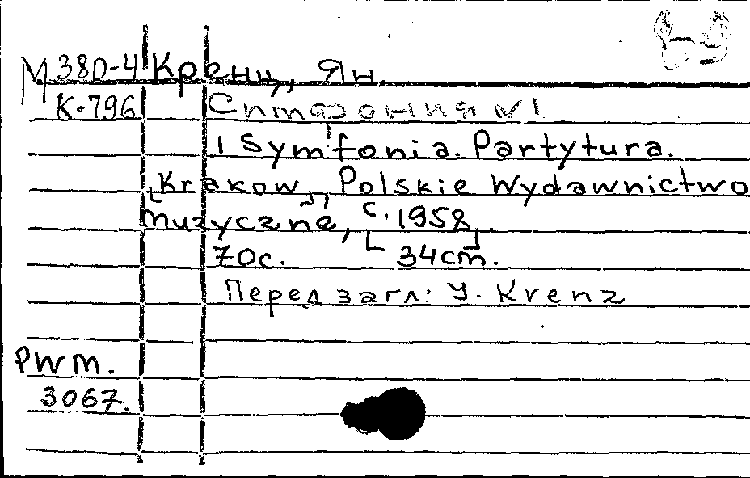 М 380-4 Кренц, Ян.
К-796 Симфония №1
I Symfonia. Partytura.
[Krakow], Polskie Wydawnictwo
muzyczne, c. 1958.
70с. [34cm.
Перед загл: Y. Krenz
PWM.
3067.